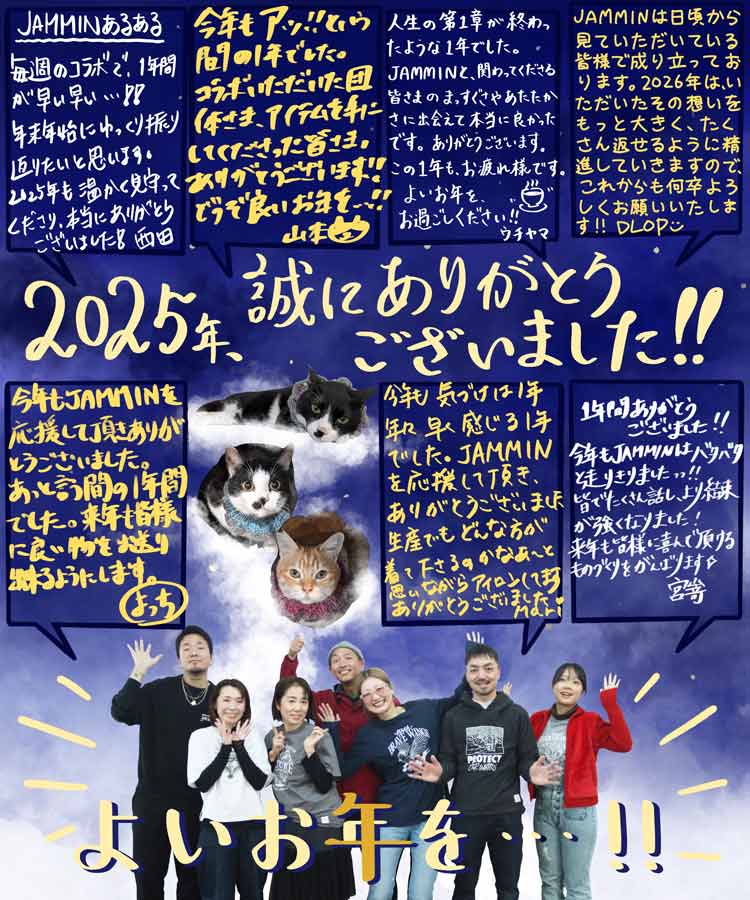 JAMMINあるある
毎週のコラボで、1年間
が早い早い…!!
年末年始にゆっくり振り
返りたいと思います。
2025年も温かく見守って
くださり、本当にありがとう
ございました! 西田
今年もアッ!!という
間の1年でした。
コラボいただいた団
体さま、アイテムを手に
してくださった皆さま。
ありがとうございます!!
どうぞ良いお年を…!!
山本
人生の第1章が終わっ
たような1年でした。
JAMMINと、関わってくださる
皆さまのまっすぐさやあたたか
さに出会えて本当に良かった
です。ありがとうございます。
この1年も、お疲れ様です。
よいお年を、
お過ごしください!!
ウチヤマ
JAMMINは日頃から
見ていただいている
皆様で成り立ってお
ります。2026年は、い
ただいたその想いを
もっと大きく、たく
さん返せるように精
進していきますので、
これからも何卒よろ
しくお願いいたしま
す!! DLOP
2025年、誠にありがとう
ございました!!
今年もJAMMINを
応援して頂きありが
とうございました。
あっと言う間の1年間
でした。来年も皆様
に良い物をお送り
出来るようにします。
よっち
今年も 気づけば1年
年々 早く感じる1年
でした。JAMMIN
を応援して頂き、
ありがとうございました
生産でも どんな方が
着て下さるのかなあ〜と
思いながらアイロンしてます
ありがとうございました
Mari
1年間ありがとう
ございました!!
今年もJAMMINはバタバタ
と走りきりましたっ!!
皆でたくさん話し、より結束
が強くなりました!
来年も皆様に喜んで頂ける
ものづくりをがんばります
宮嵜
BRAVE WINGS
PROTECT
よいお年を…!!